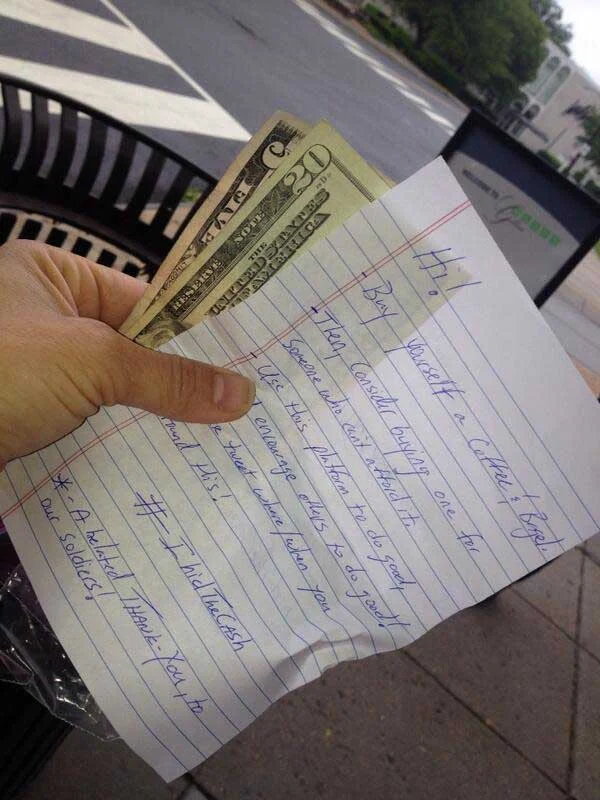 20
FIVE
RESERVE NOTE
THE
UNITED STATES
AMERICA
WELCOME TO
Hi!
- Buy yourself a Coffee & Bagel.
- Then, consider buying one for
someone who can't afford it.
- Use this platform to do good,
encourage others to do good!
tweet where/when you
this!
# - IhidTheCash
* - A belated THANK-YOU, to
our soldiers!